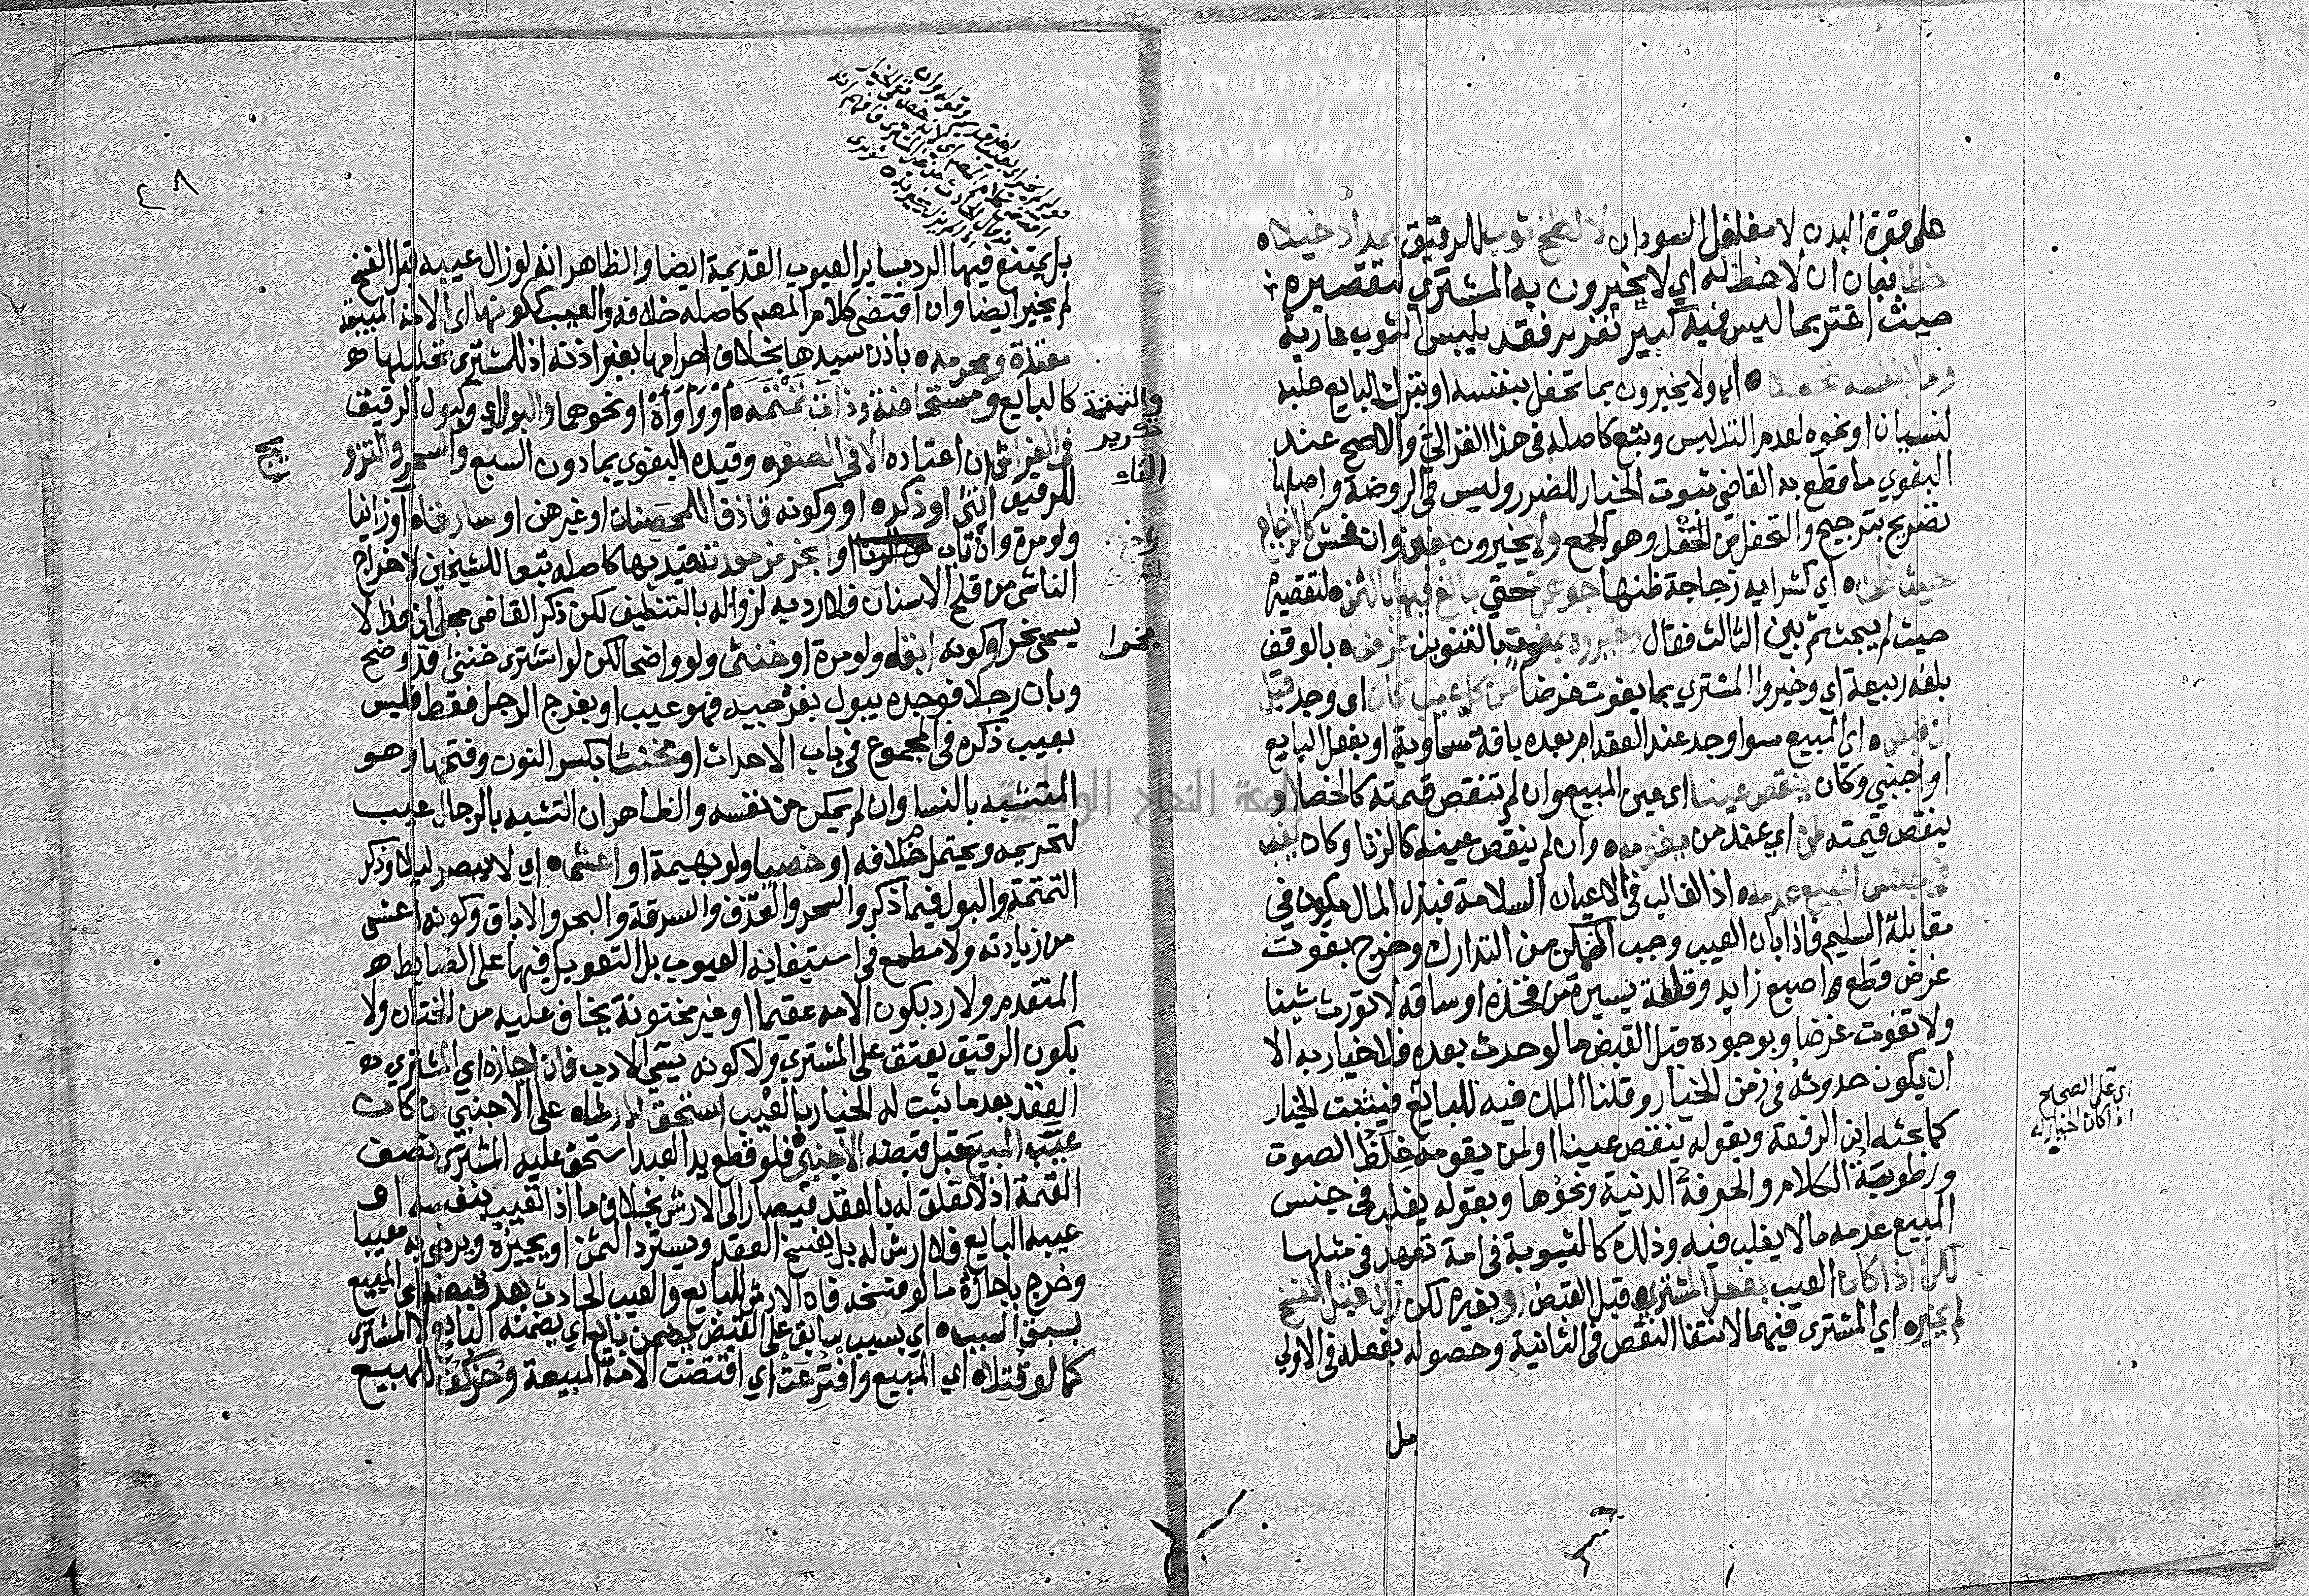 على مقرة البدن لا مفلفل السودان لا لطخ ثوب للرقيق بمداد خيلاه
خطا فبان ان لا خط له اي لا يخيرون به المشتري لتقصيره
حيث اغتر بما ليس فيه كبير تغرير فقد يلبس الثوب عارية
وما بنفسه تحفلا اي ولا يخيرون بما تحفل بنفسه او بترك البايع حلبه
لنسيان او نحوه لعدم التدليس وتبع كاصله في هذا الغزالي والاصح عند
البغوي ما قطع به القاضي ثبوت الخيار للضرر وليس في الروضة واصلها
تصريح بترجيح والتحفل من الحفل وهو الجمع ولا يخيرون بغبن وان فحش كالزجاج
حيث ظن اي كشرايه زجاجة ظنها جوهرة حتي بالغ فيها بالثمن لتقصيره
حيث لم يبحث ثم بين الثالث فقال وخيروه بمفوت بالتنوين غرض بالوقف
بلغة ربيعة اي وخيروا المشتري بما يفوت غرضا من كل عيب كان اي وجد قبل
ان قبض اي المبيع سوا وجد عند العقد ام بعده بافة سماوية او بفعل البايع
او اجنبي وكان ينقص عينا اي عين المبيع وان لم تنقص قيمته كالخصا او
ينقص قيمته اي عند من يقومه وان لم ينقص عينه كالزنا وكان يغلب
في جنس المبيع عدمه اذ الغالب في الاعيان السلامة فبذل المال يكون في
مقابلة السليم فاذا بان العيب وجب التمكن من التدارك وخرج بفوت
غرض قطع اصبع زايد وقطعة يسيرة من فخذه او ساقه لا تورث شينا
ولا تفوت غرضا وبوجوده قبل القبض ما لو حدث بعده فلا خيار به الا
ان يكون حدوثه في زمن الخيار وقلنا الملك فيه للبايع فيثبت الخيار
كما بحثه ابن الرفعة وبقوله ينقص عينا او لمن يقومه غلظ الصوت
ورطوبة الكلام والحرفة الدنية ونحوها وبقوله يغلب في جنس
المبيع عدمه ما لا يغلب فيه وذلك كالثيوبة في امة تعهد في مثلها
لكن اذا كان العيب بفعل المشتري قبل القبض او بغيره لكن زال قبل الفسخ
لم يخيره اي المشتري فيهما لانتفا النقص في الثانية وحصوله بفعله في الاولي
بل
اي على الصحيح
اذا كان الخيار له
٤٨
بل يمتنع فيها الرد بساير العيوب القديمة ايضا والظاهر انه لو زال عيبه قبل الفسخ
لم يخير ايضا وان اقتضى كلام المصنف كاصله خلافه والعيب ككونها اي الامة المبيعة
معتدة ومحرمه باذن سيدها بخلاف احرامها بغير اذنه اذ للمشتري تحليلها
كالبايع ومستحاضة وذات تمتمه او واواة او نحوهما والبول اي وكبول الرقيق
في الفراش ان اعتاده الا في الصغر وقيده البغوي بما دون السبع والسحر والتزو
للرقيق انثى او ذكره او وكونه قاذفا للمحصنات او غيرهن او سارقاه او زانيا
ولو مرة وان تاب او ابخر من معدته قيد بها كاصله تبعا للشيخين لاخراج
الناشي من قلح الاسنان فلا رد به لزواله بالتنظيف لكن ذكر القاضي مجلي ان هذا لا
يسمى بخرا او كونه ابقا ولو مرة او خنثى ولو واضحا لكن لو اشترى خنثى قد وضح
وبان رجلا فوجده يبول بفرجيه فهو عيب او بفرج الرجل فقط فليس
بعيب ذكره في المجموع في باب الاحداث او مخنثا بكسر النون وفتحها وهو
المتشبه بالنسا وان لم يمكن من نفسه والظاهر ان التشبه بالرجال عيب
لتحريمه ويحتمل خلافه او خصيا ولو بهيمة او اعشى اي لا يبصر ليلا وذكر
التمتمة والبول فيما ذكر والسحر والقذف والسرقة والبخر والاباق وكونه اعشى
من زيادته ولا مطمع في استيفاية العيوب بل التعويل فيها على الضابط
المتقدم ولا رد بكون الامه عقيما او غير مختونة يخاف عليه من الختان ولا
بكون الرقيق يعتق على المشتري ولا كونه سيّي الادب فان اجازه اي المشتري
العقد بعد ما ثبت له الخيار بالعيب استحق ارشاه على الاجنبي ان كان
عيّب المبيع قبل قبضه الاجنبي فلو قطع يد العبد استحق عليه المشتري نصف
القيمة اذ لا تعلق له بالعقد فيصار الى الارش بخلاف ما اذا تعيب بنفسه او
عيبه البايع فلا ارش له بل يفسخ العقد ويسترد الثمن او يجيزه ويرضى به معيبا
وخرج باجازة ما لو فسخه فان الارش للبايع والعيب الحادث بعد قبضه اي المبيع
بسبق السبب اي بسبب سابق على القبض يضمن بايع اي يضمنه البايع لا المشتري
كما لو قتلاه اي المبيع وافترعت اي اقتضت الامة المبيعة وحز كف المبيع
والتمتمة
تكرير
التاء
بخرا